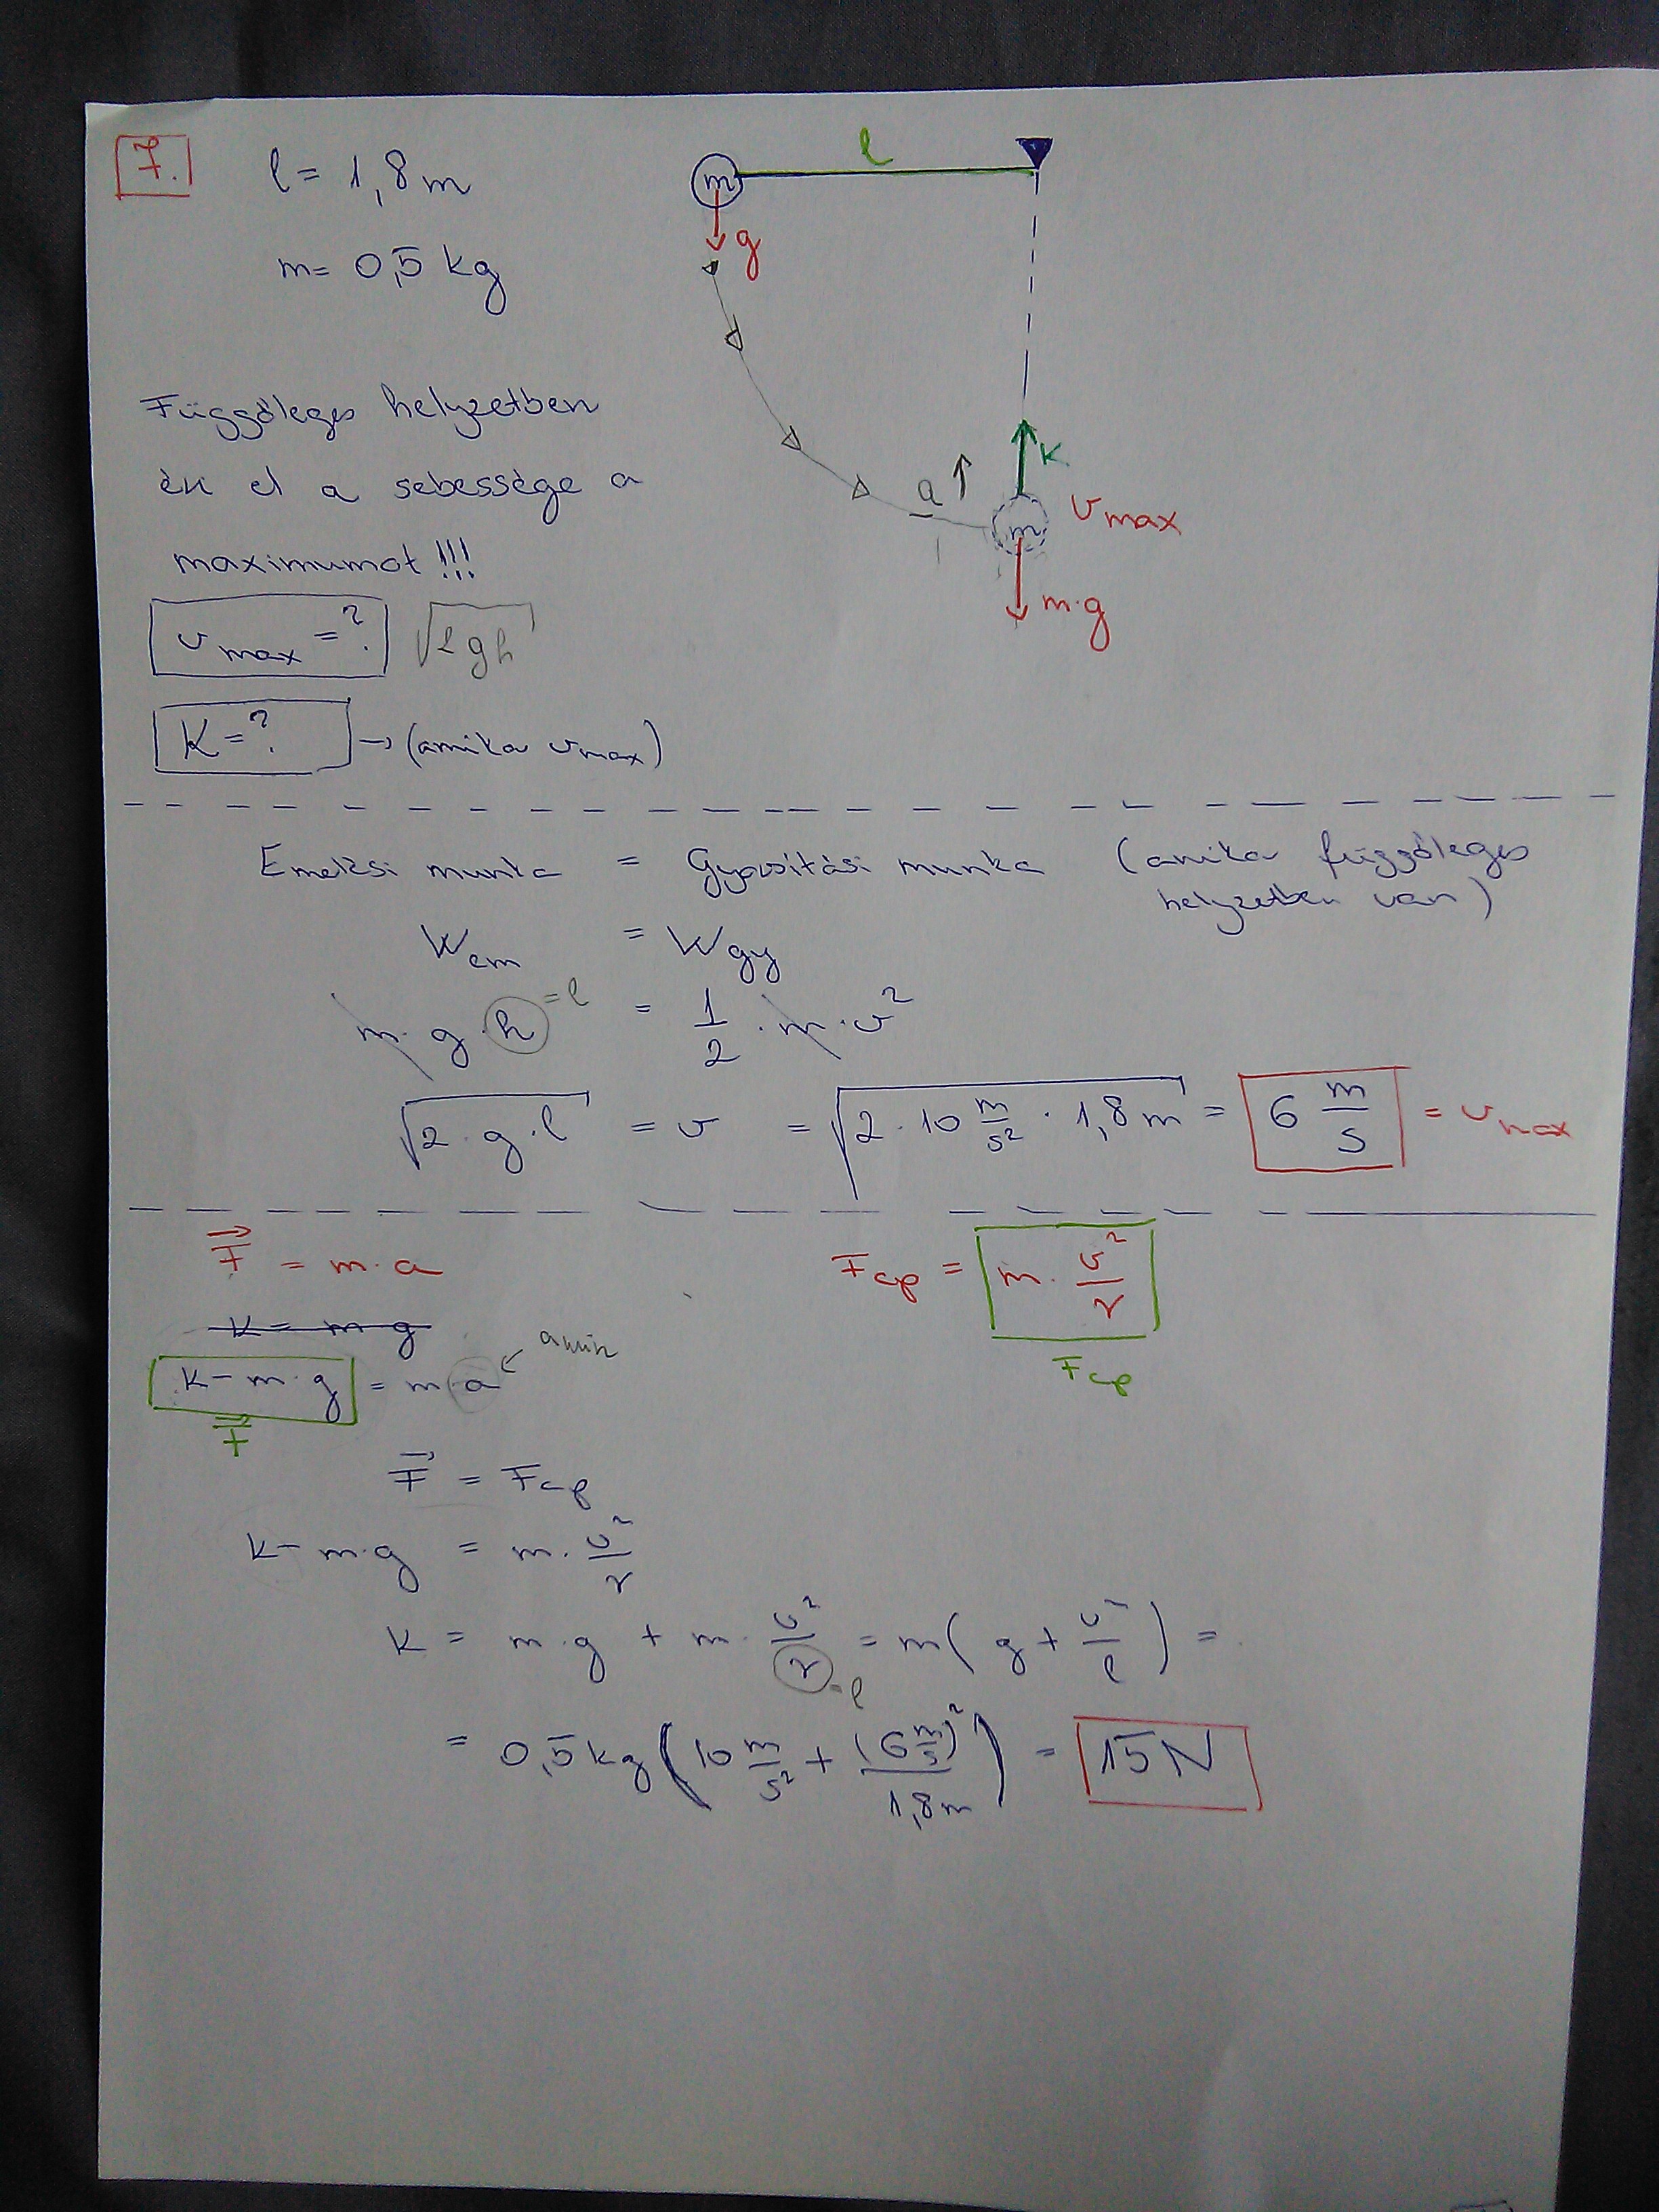 7.
l = 1,8 m
m = 0,5 kg
l
m
g
Függőleges helyzetben
éri el a sebessége a
maximumot !!!
a ↑
K
m
v max
m·g
v max = ?
√2gh
K = ? → (amikor v max)
Emelési munka = Gyorsítási munka (amikor függőleges
helyzetben van)
W em = W gy
m · g · h = 1/2 · m · v²
= l
√2 · g · l = v = √2 · 10 m/s² · 1,8 m = 6 m/s = v max
F⃗ = m · a
F cp = m · v²/r
F cp
K = m g
K − m · g = m · a
F⃗
F⃗ = F cp
K − m·g = m · v²/r
K = m · g + m · v²/r = m ( g + v²/l ) =
= l
= 0,5 kg ( 10 m/s² + (6 m/s)²/1,8 m ) = 15 N